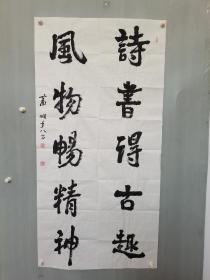 詩書得古趣
風物暢精神